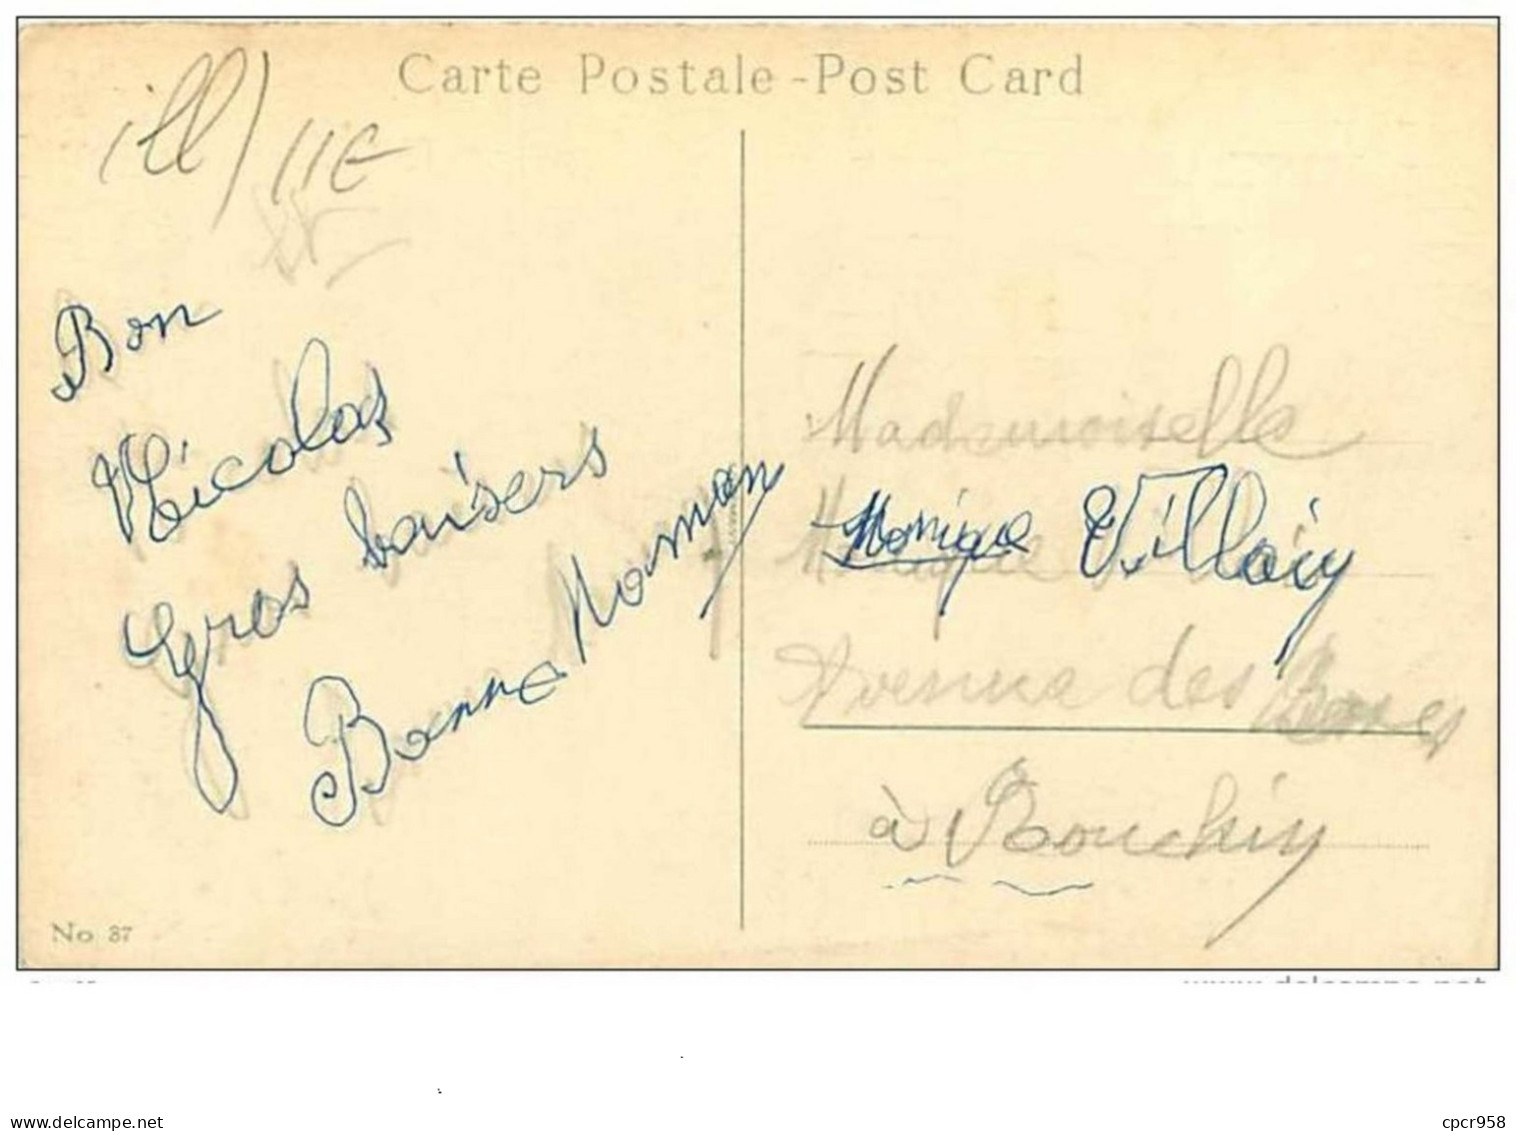 Carte Postale - Post Card
ill/11€
Bon
Nicolas
Gros baisers
Bonne Maman
Mademoiselle
Monique Villain
Avenue des
à Bouchin
No 37
cpcr958
www.delcampe.net